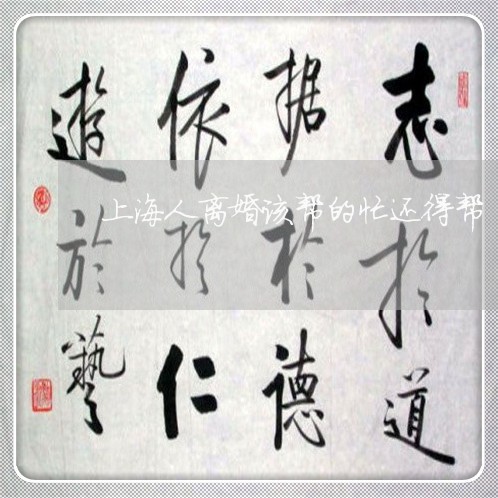 志於道
据於德
依於仁
遊於藝
上海人离婚该帮的忙还得帮